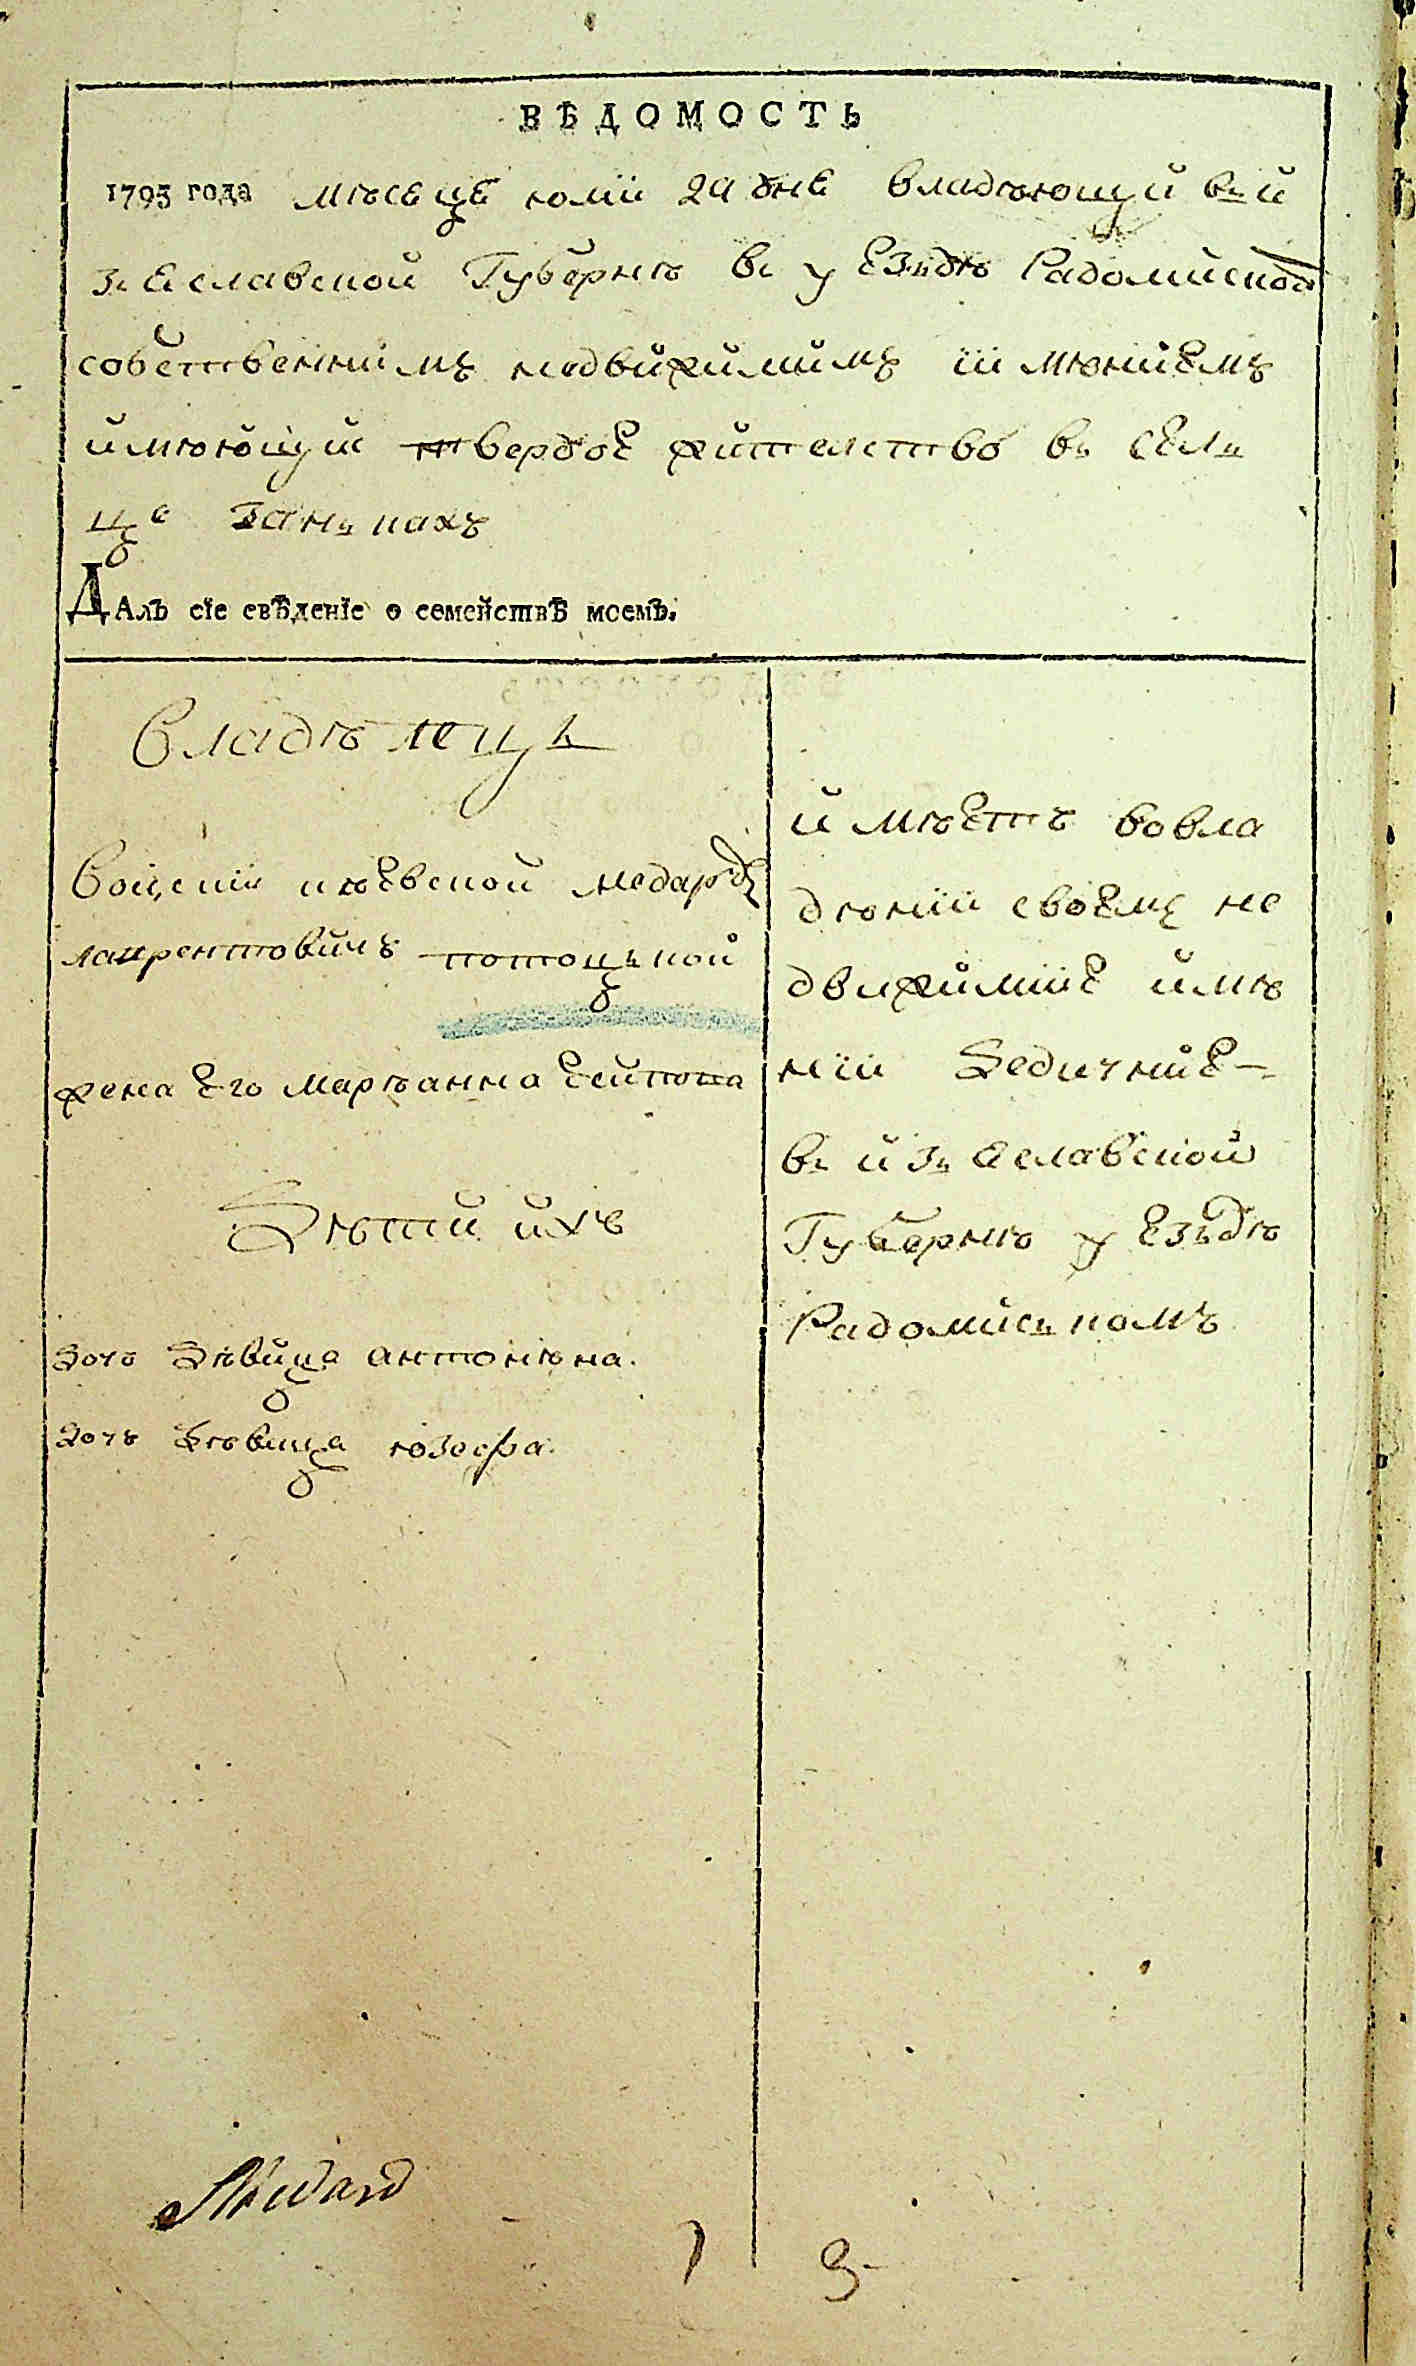 ВѢДОМОСТЬ
1795 года мѣсеце юлїи 29 дне владѣющий въ й
зъ еславской Губернѣ въ уездѣ Радомиском
собственнимъ недвижимимъ имѣниемъ
имѣющий твердое жителство въ сель
це Ганьпахъ
Далъ сїе свѣденїе о семействѣ моемъ.
Владѣлецъ
Воцский кіевской медардъ
лаврентовичъ потоцькой
жена его маръанна
Дѣтий ихъ
дочь дѣвица антонѣна.
дочь дѣвица юзефа.
имѣетъ во вла
дѣнїи своемъ не
движимїе имѣ
нїи дедичние
въ изъ еславской
Губернѣ уездѣ
Радомиськомъ
Medard